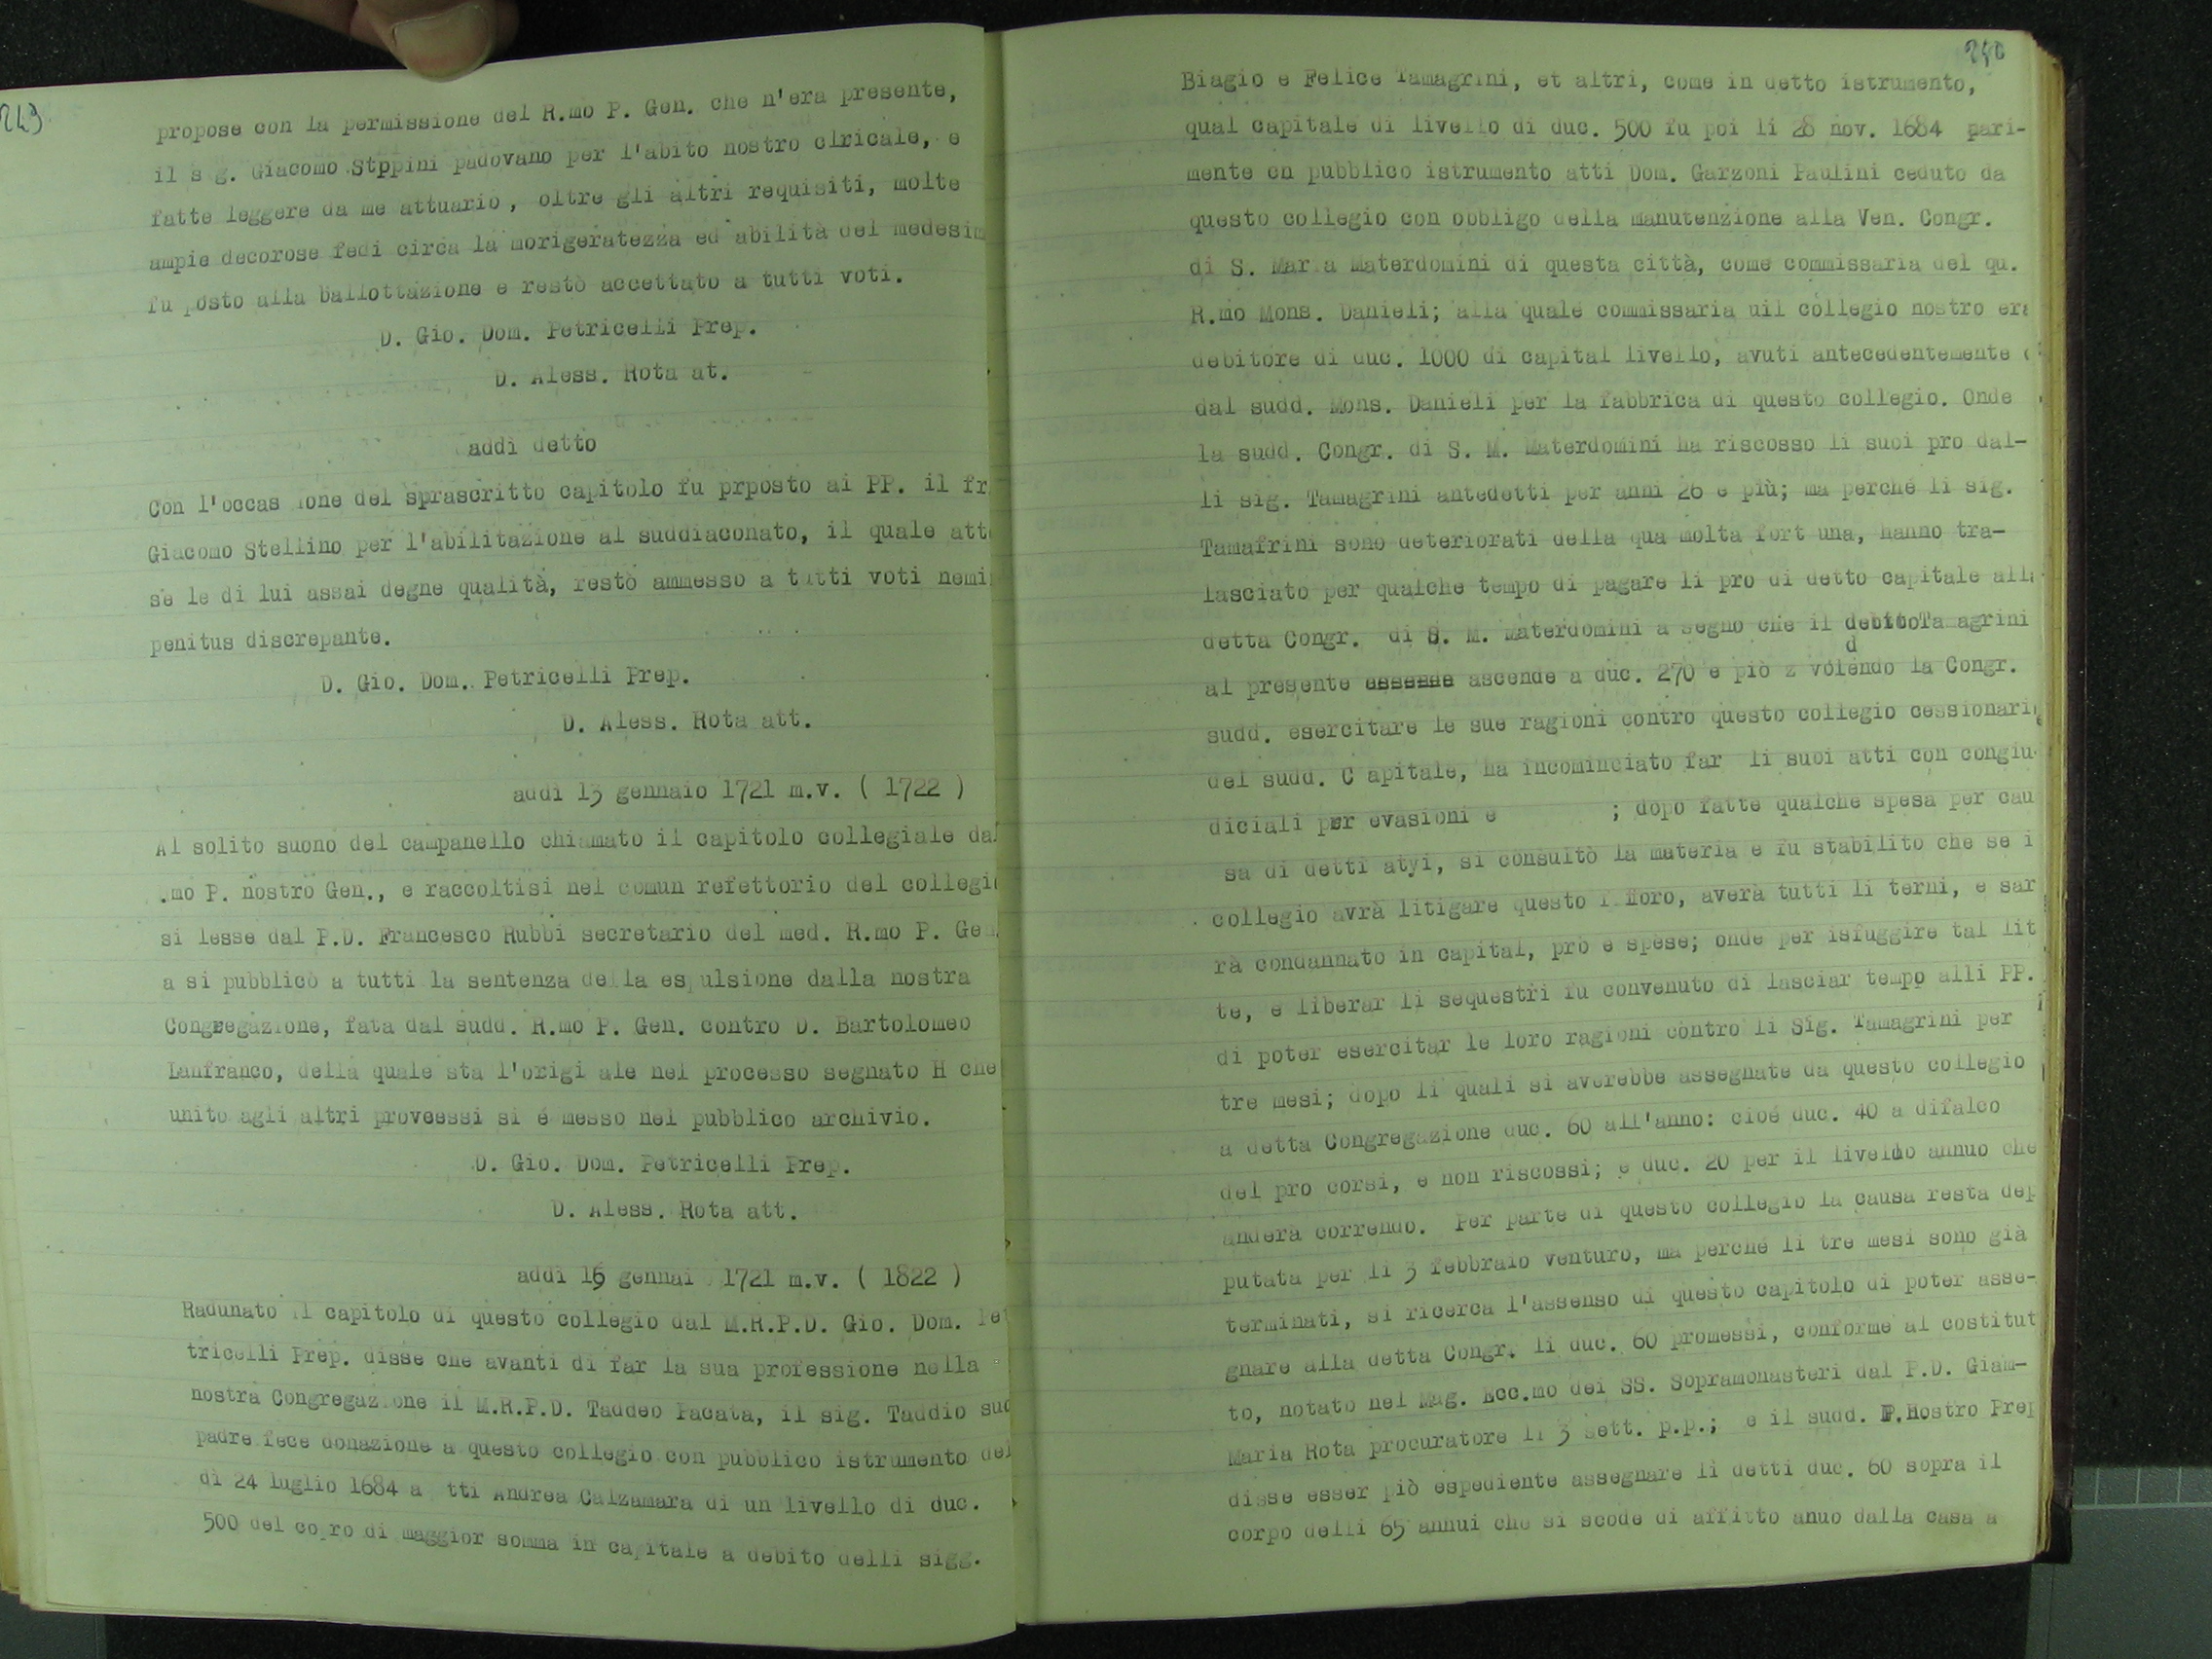 243
propose con la permissione del R.mo P. Gen. che n'era presente,
il s g. Giacomo Stppini padovano per l'abito nostro clricale, e
fatte leggere da me attuario, oltre gli altri requisiti, molte
ampie decorose fedi circa la morigeratezza ed abilità del medesim
fu posto alla ballottazione e restò accettato a tutti voti.
D. Gio. Dom. Petricelli Prep.
D. Aless. Rota at.
addì detto
Con l'occas ione del sprascritto capitolo fu prposto ai PP. il fr
Giacomo Stellino per l'abilitazione al suddiaconato, il quale att
se le di lui assai degne qualità, restò ammesso a tutti voti nemi
penitus discrepante.
D. Gio. Dom. Petricelli Prep.
D. Aless. Rota att.
addì 13 gennaio 1721 m.v. ( 1722 )
Al solito suono del campanello chiamato il capitolo collegiale dal
.mo P. nostro Gen., e raccoltisi nel comun refettorio del collegio
si lesse dal P.D. Francesco Rubbi secretario del med. R.mo P. Gen
a si pubblicò a tutti la sentenza della espulsione dalla nostra
Congregazione, fata dal sudd. R.mo P. Gen. contro D. Bartolomeo
Lanfranco, della quale sta l'origi ale nel processo segnato H che
unito agli altri proveessi si é messo nel pubblico archivio.
D. Gio. Dom. Petricelli Prep.
D. Aless. Rota att.
addì 16 gennai 1721 m.v. ( 1822 )
Radunato il capitolo di questo collegio dal M.R.P.D. Gio. Dom. Pet
tricelli Prep. disse che avanti di far la sua professione nella
nostra Congregazione il M.R.P.D. Taddeo Pacata, il sig. Taddio suo
padre fece donazione a questo collegio con pubblico istrumento del
dì 24 luglio 1684 a tti Andrea Calzamara di un livello di duc.
500 del corro di maggior somma in capitale a debito delli sigg.
240
Biagio e Felice Tamagrini, et altri, come in detto istrumento,
qual capitale di livello di duc. 500 fu poi li 28 nov. 1684 pari-
mente cn pubblico istrumento atti Dom. Garzoni Paulini ceduto da
questo collegio con obbligo della manutenzione alla Ven. Congr.
di S. Maria Materdomini di questa città, come commissaria del qu.
R.mo Mons. Danieli; alla quale commissaria uil collegio nostro era
debitore di duc. 1000 di capital livello, avuti antecedentemente
dal sudd. Mons. Danieli per la fabbrica di questo collegio. Onde
la sudd. Congr. di S. M. Materdomini ha riscosso li suoi pro dal-
li sig. Tamagrini antedetti per anni 26 e più; ma perché li sig.
Tamafrini sono deteriorati della qua molta fort una, hanno tra-
lasciato per qualche tempo di pagare li pro di detto capitale alla
detta Congr. di S. M. Materdomini a segno che il debitoTamagrini
al presente ascende a duc. 270 e piò z volendo la Congr.
sudd. esercitare le sue ragioni contro questo collegio cessionario
del sudd. C apitale, ha incominciato far li suoi atti con congiu-
diciali per evasioni e ; dopo fatte qualche spesa per cau
sa di detti atyi, si consultò la materia e fu stabilito che se i
collegio avrà litigare questo foro, averà tutti li terni, e sar
rà condannato in capital, pro e spese; onde per isfuggire tal lit
te, e liberar li sequestri fu convenuto di lasciar tempo alli PP.
di poter esercitar le loro ragioni contro li Sig. Tamagrini per
tre mesi; dopo li quali si averebbe assegnate da questo collegio
a detta Congregazione duc. 60 all'anno: cioé duc. 40 a difalco
del pro corsi, e non riscossi; e duc. 20 per il livello annuo che
anderà correndo. Per parte di questo collegio la causa resta dep
putata per li 3 febbraio venturo, ma perché li tre mesi sono già
terminati, si ricerca l'assenso di questo capitolo di poter asse-
gnare alla detta Congr. li duc. 60 promessi, conforme al costitut
to, notato nel Mag. Ecc.mo dei SS. Sopramonasteri dal P.D. Giam-
Maria Rota procuratore li 3 sett. p.p.; e il sudd. P.Nostro Prep
disse esser piò espediente assegnare li detti duc. 60 sopra il
corpo delli 65 annui che si scode di affitto anuo dalla casa a